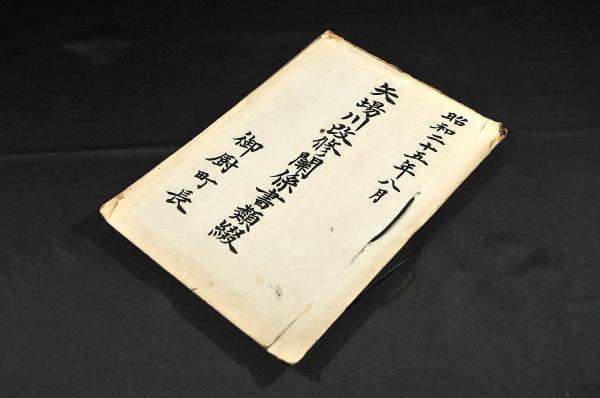 昭和二十五年八月
矢場川改修関係書類綴
御厨町長